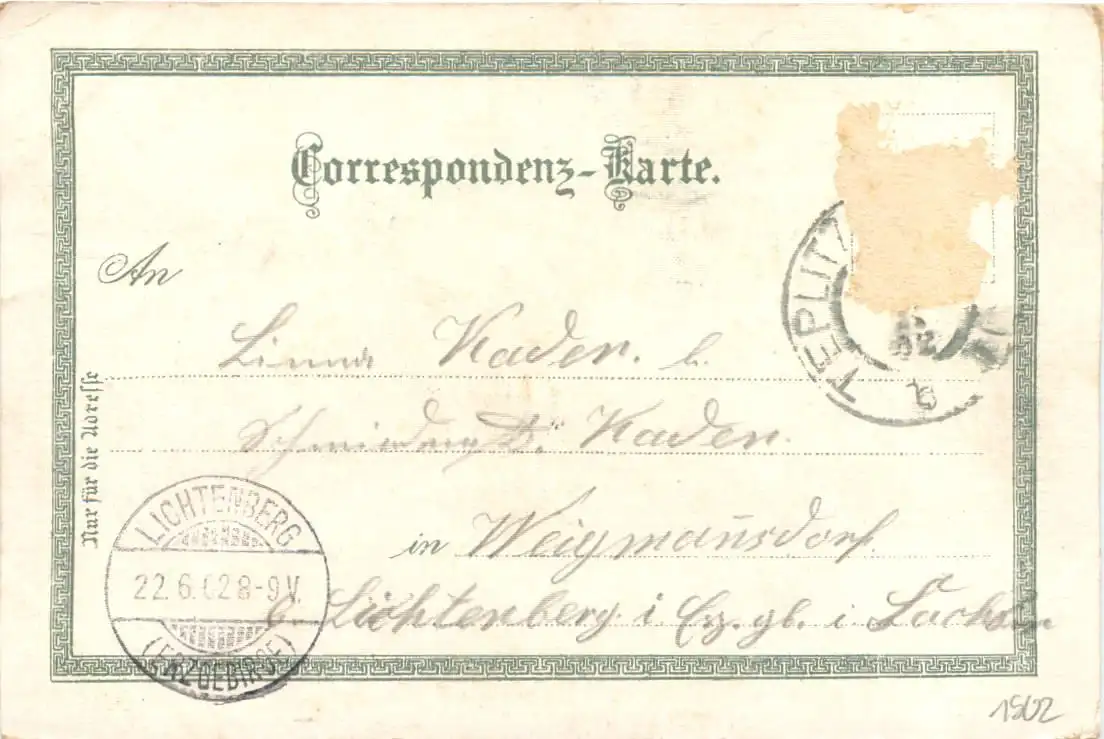 Correspondenz-Karte.
An
Linna Kaden. b.
Kaden.
in Weigmansdorf.
b. Lichtenberg i Erz.gb. i Sachsen
Nur für die Adresse
TEPLITZ
LICHTENBERG
22.6.02 8-9 V.
(ERZGEBIRGE)
1902